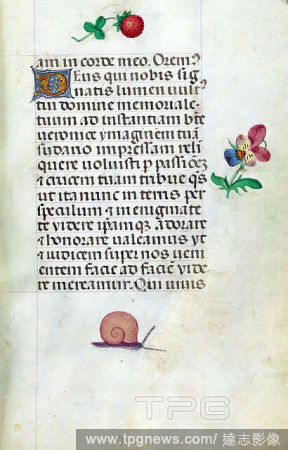 am in corde meo. Orem⁹
Deus qui nobis sig
natis lumen vult⁹
tui domine memoriale
tuum ad instantiam bte
veronice ymaginem tuā
sudario impressam reli
quere voluisti p passiōez
& crucem tuam tribue qs
ut ita nunc in terris per
speculum & in enigmate
te videre ipamqz adorare
& honorare valeamus vt
te iudicem super nos veni
entem facie ad faciē vide
re mereamur. Qui vivis
TPG
www.tpgnews.com/ 達志影像